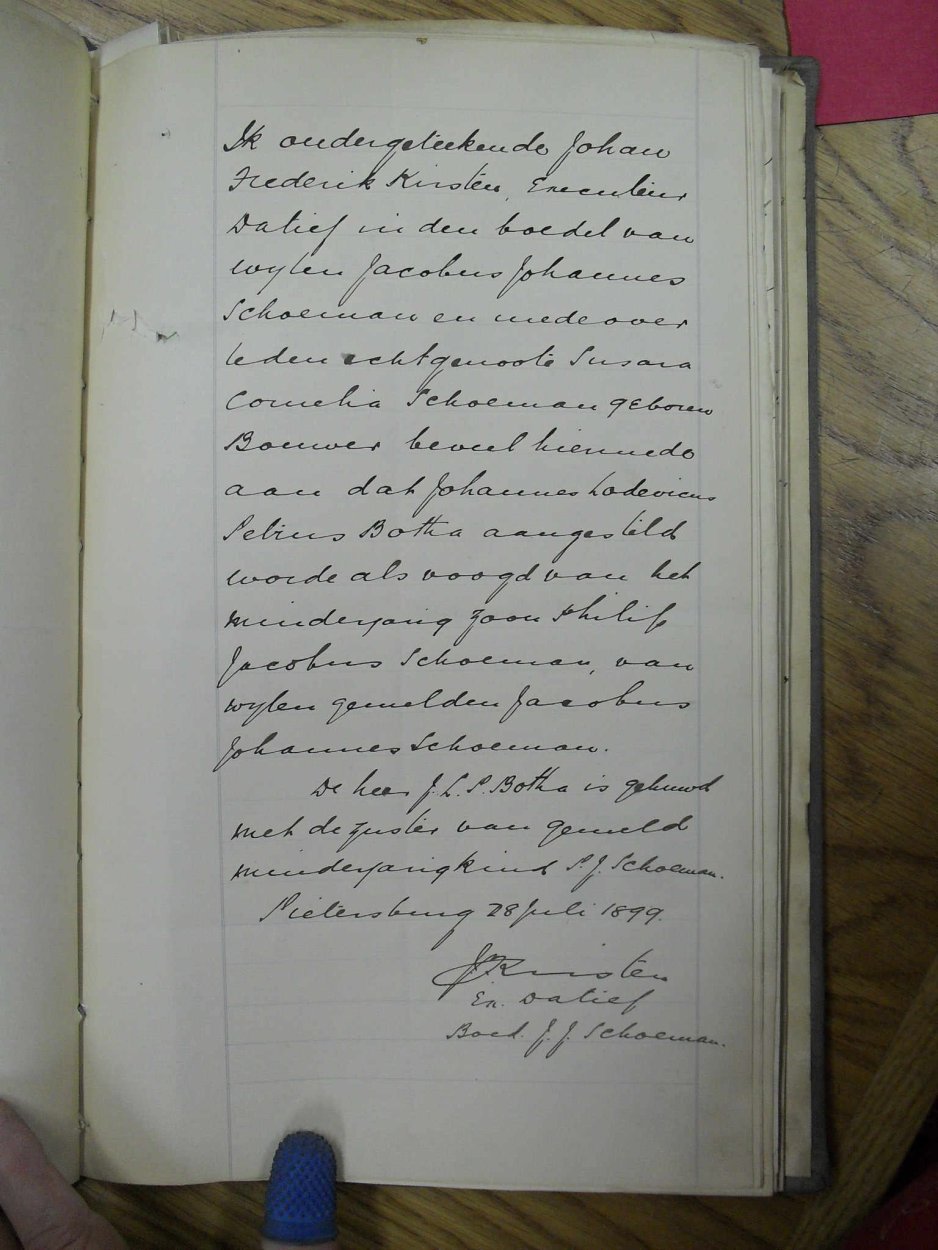 Ik ondergeteekende Johan
Frederik Kirsten, Executeur
Datief in den boedel van
wylen Jacobus Johannes
Schoeman en mede over
leden echtgenoote Susara
Cornelia Schoeman geboren
Bouwer beveel hiermede
aan dat Johannes Lodevicus
Petrus Botha aangesteld
worde als voogd van het
minderjarig zoon Philip
Jacobus Schoeman, van
wylen gemelden Jacobus
Johannes Schoeman.
De heer J. L. P. Botha is gehuwd
met de zuster van gemeld
minderjarig kind P. J. Schoeman.
Pietersburg 28 Juli 1899.
JFKirsten
Ex. Datief
Boed. J. J. Schoeman.